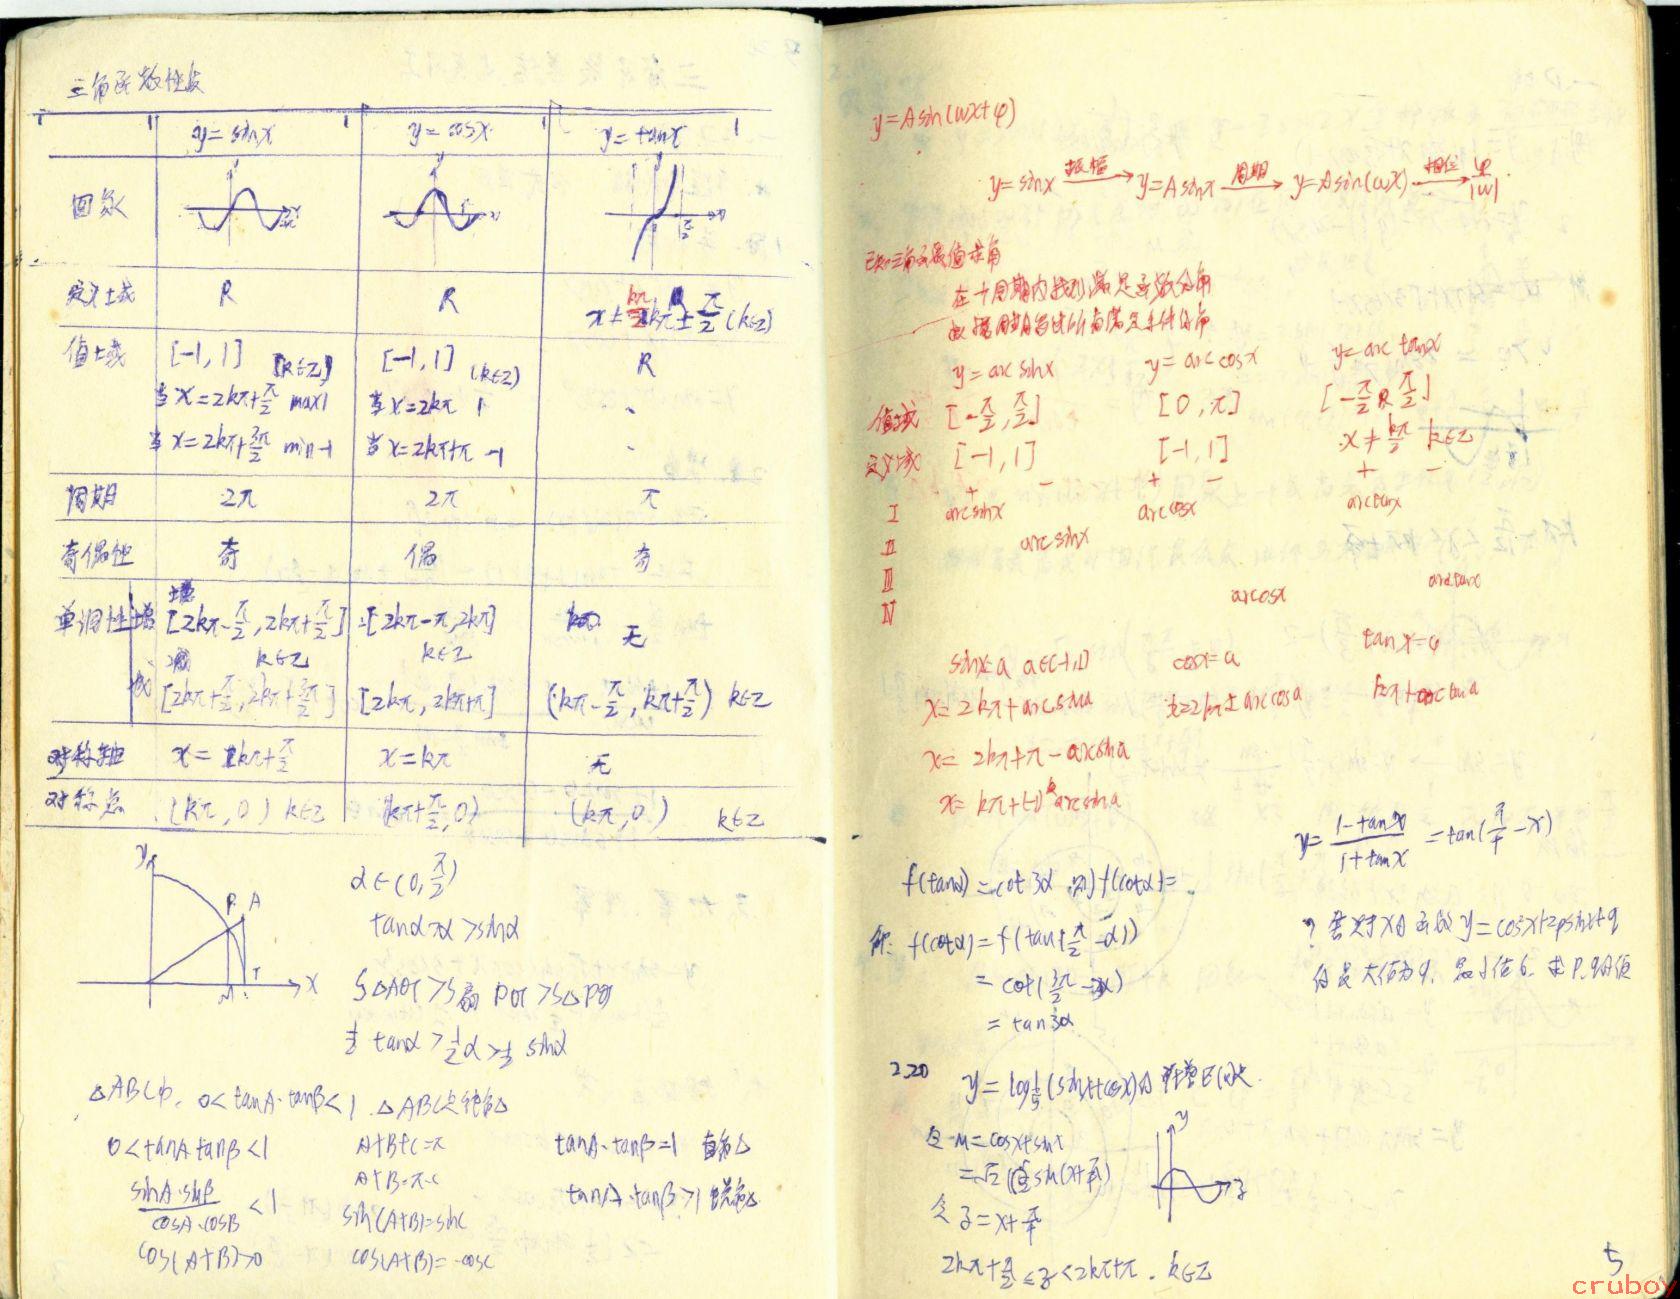 三角函数性质
y=sinx y=cosx y=tanx
图象
定义域 R R x≠kπ±π/2 (k∈Z)
值域 [-1,1] (k∈Z) [-1,1] (k∈Z) R
当x=2kπ+π/2 max1 当x=2kπ 1 -
当x=2kπ+3π/2 min-1 当x=2kπ+π -1 -
周期 2π 2π π
奇偶性 奇 偶 奇
单调性 增 增 [2kπ-π/2, 2kπ+π/2] [2kπ-π, 2kπ] 无
k∈Z k∈Z
减 减 [2kπ+π/2, 2kπ+3π/2] [2kπ, 2kπ+π] (kπ-π/2, kπ+π/2) k∈Z
对称轴 x=kπ+π/2 x=kπ 无
对称点 (kπ,0) k∈Z (kπ+π/2,0) (kπ,0) k∈Z
y x P A M T
α∈(0,π/2)
tanα>α>sinα
S△AOT>S扇POT>S△POT
½tanα>½α>½sinα
△ABC中, 0<tanA·tanB<1 △ABC是钝角△
0<tanA tanB<1 A+B+C=π tanA·tanB=1 直角△
sinA·sinB/cosA·cosB<1 A+B=π-C tanA·tanB>1 锐角△
sin(A+B)=sinC
cos(A+B)>0 cos(A+B)=-cosC
y=Asin(ωx+φ)
y=sinx 振幅→ y=Asinx 周期→ y=Asin(ωx) 相位→ φ/|ω|
已知三角函数值求角
在一个周期内找到满足函数的角
根据周期写出所有满足条件的角
y=arcsinx y=arccosx y=arctanx
值域 [-π/2, π/2] [0,π] [-π/2 R π/2]
定义域 [-1,1] [-1,1] x≠kπ/2 k∈Z
+ - + - + -
I arcsinx arccosx arctanx
II arcsinx
III arccosx arctanx
IV
sinx=a a∈(-1,1) cosx=a tanx=a
x=2kπ+arcsina x=2kπ±arccosa kπ+arctana
x=2kπ+π-arcsina
x=kπ+(-1)^k arcsina
y=(1-tanx)/(1+tanx)=tan(π/4-x)
f(tanα)=cot3α 则f(cotα)=
解: f(cotα)=f(tan(π/2-α))
=cot(3π/2-3α)
=tan3α
? 若关于x的函数y=cos²x+2psinx+q
的最大值为9, 最小值6, 求p,q的值
2.20 y=log½(sinx+cosx)的单增区间是.
令u=cosx+sinx
=√2sin(x+π/4)
令z=x+π/4
y z
2kπ+π/2≤z<2kπ+π, k∈Z
5
cruboy